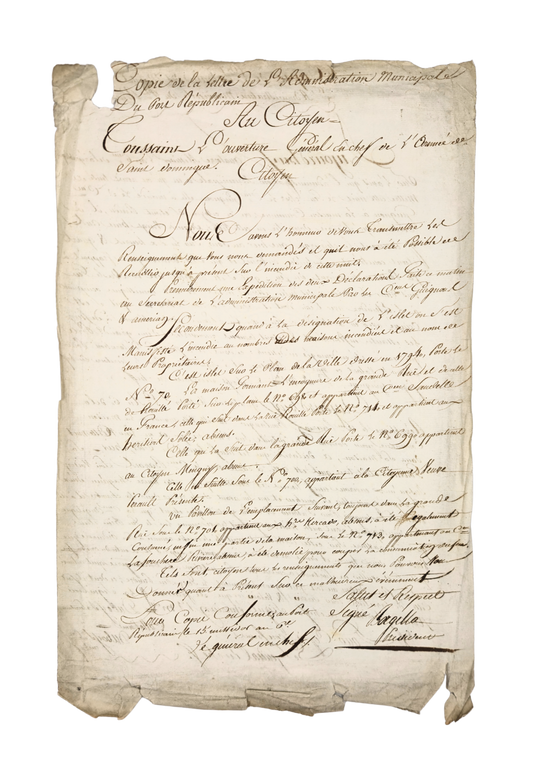 Copie de la Lettre de L'administration Municipale
Du Port Républicain
Au Citoyen
Toussaint L'ouverture Général en chef de L'Armée de
Saint domingue.
Citoyen
Nous avons L'honneur de vous transmettre Les
Renseignements que vous nous demandés et qu'il nous a été Possible de
Recueillir jusqu'à présent Sur l'incendie de cette nuit.
Premierement une Expédition des deux Déclarations faites ce matin
au Secretariat de L'administration municipale Par les Cens
Secondement quant à la designation de L'islet ou S'est
Manifesté L'incendie au nombre Des maisons incendiées et au nom de
Leurs Propriétaires;
C'est islet Sur le Plan de la Ville dressé en 1794, Porte le
No. 70. La maison formant L'encoignure de la grande Rue et de celle
de Rouillé Porté Sur le plan le No. 698 et appartient au Cen
en France, celle qui Suit dans la rue Rouillé Porte le No. 714 et appartient aux
absens.
Celle qui la Suit dans la grande Rue Porte le No. 699 appartenait
au Citoyen absent.
Celle qui Suit Sous le No. 700, appartient à la Citoyenne Veuve
Présente.
un Pavillon de L'emplacement Suivant, toujours dans la grande
Rue Sous le No. 701 appartenant aux absens a été également
Consumé, enfin une partie de la maison, Sous le No. 713, appartenant au Cen
a été démolie pour couper la communication du feu
Tels Sont, citoyen tous les renseignements que nous Pouvons Vous
Donner quant à Présent Sur ce malheureux évènement
Salut et Respect
Signé
Président
Pour Copie Conforme au Port
Républicain le 15 messidor an 6e
Le général en chef,